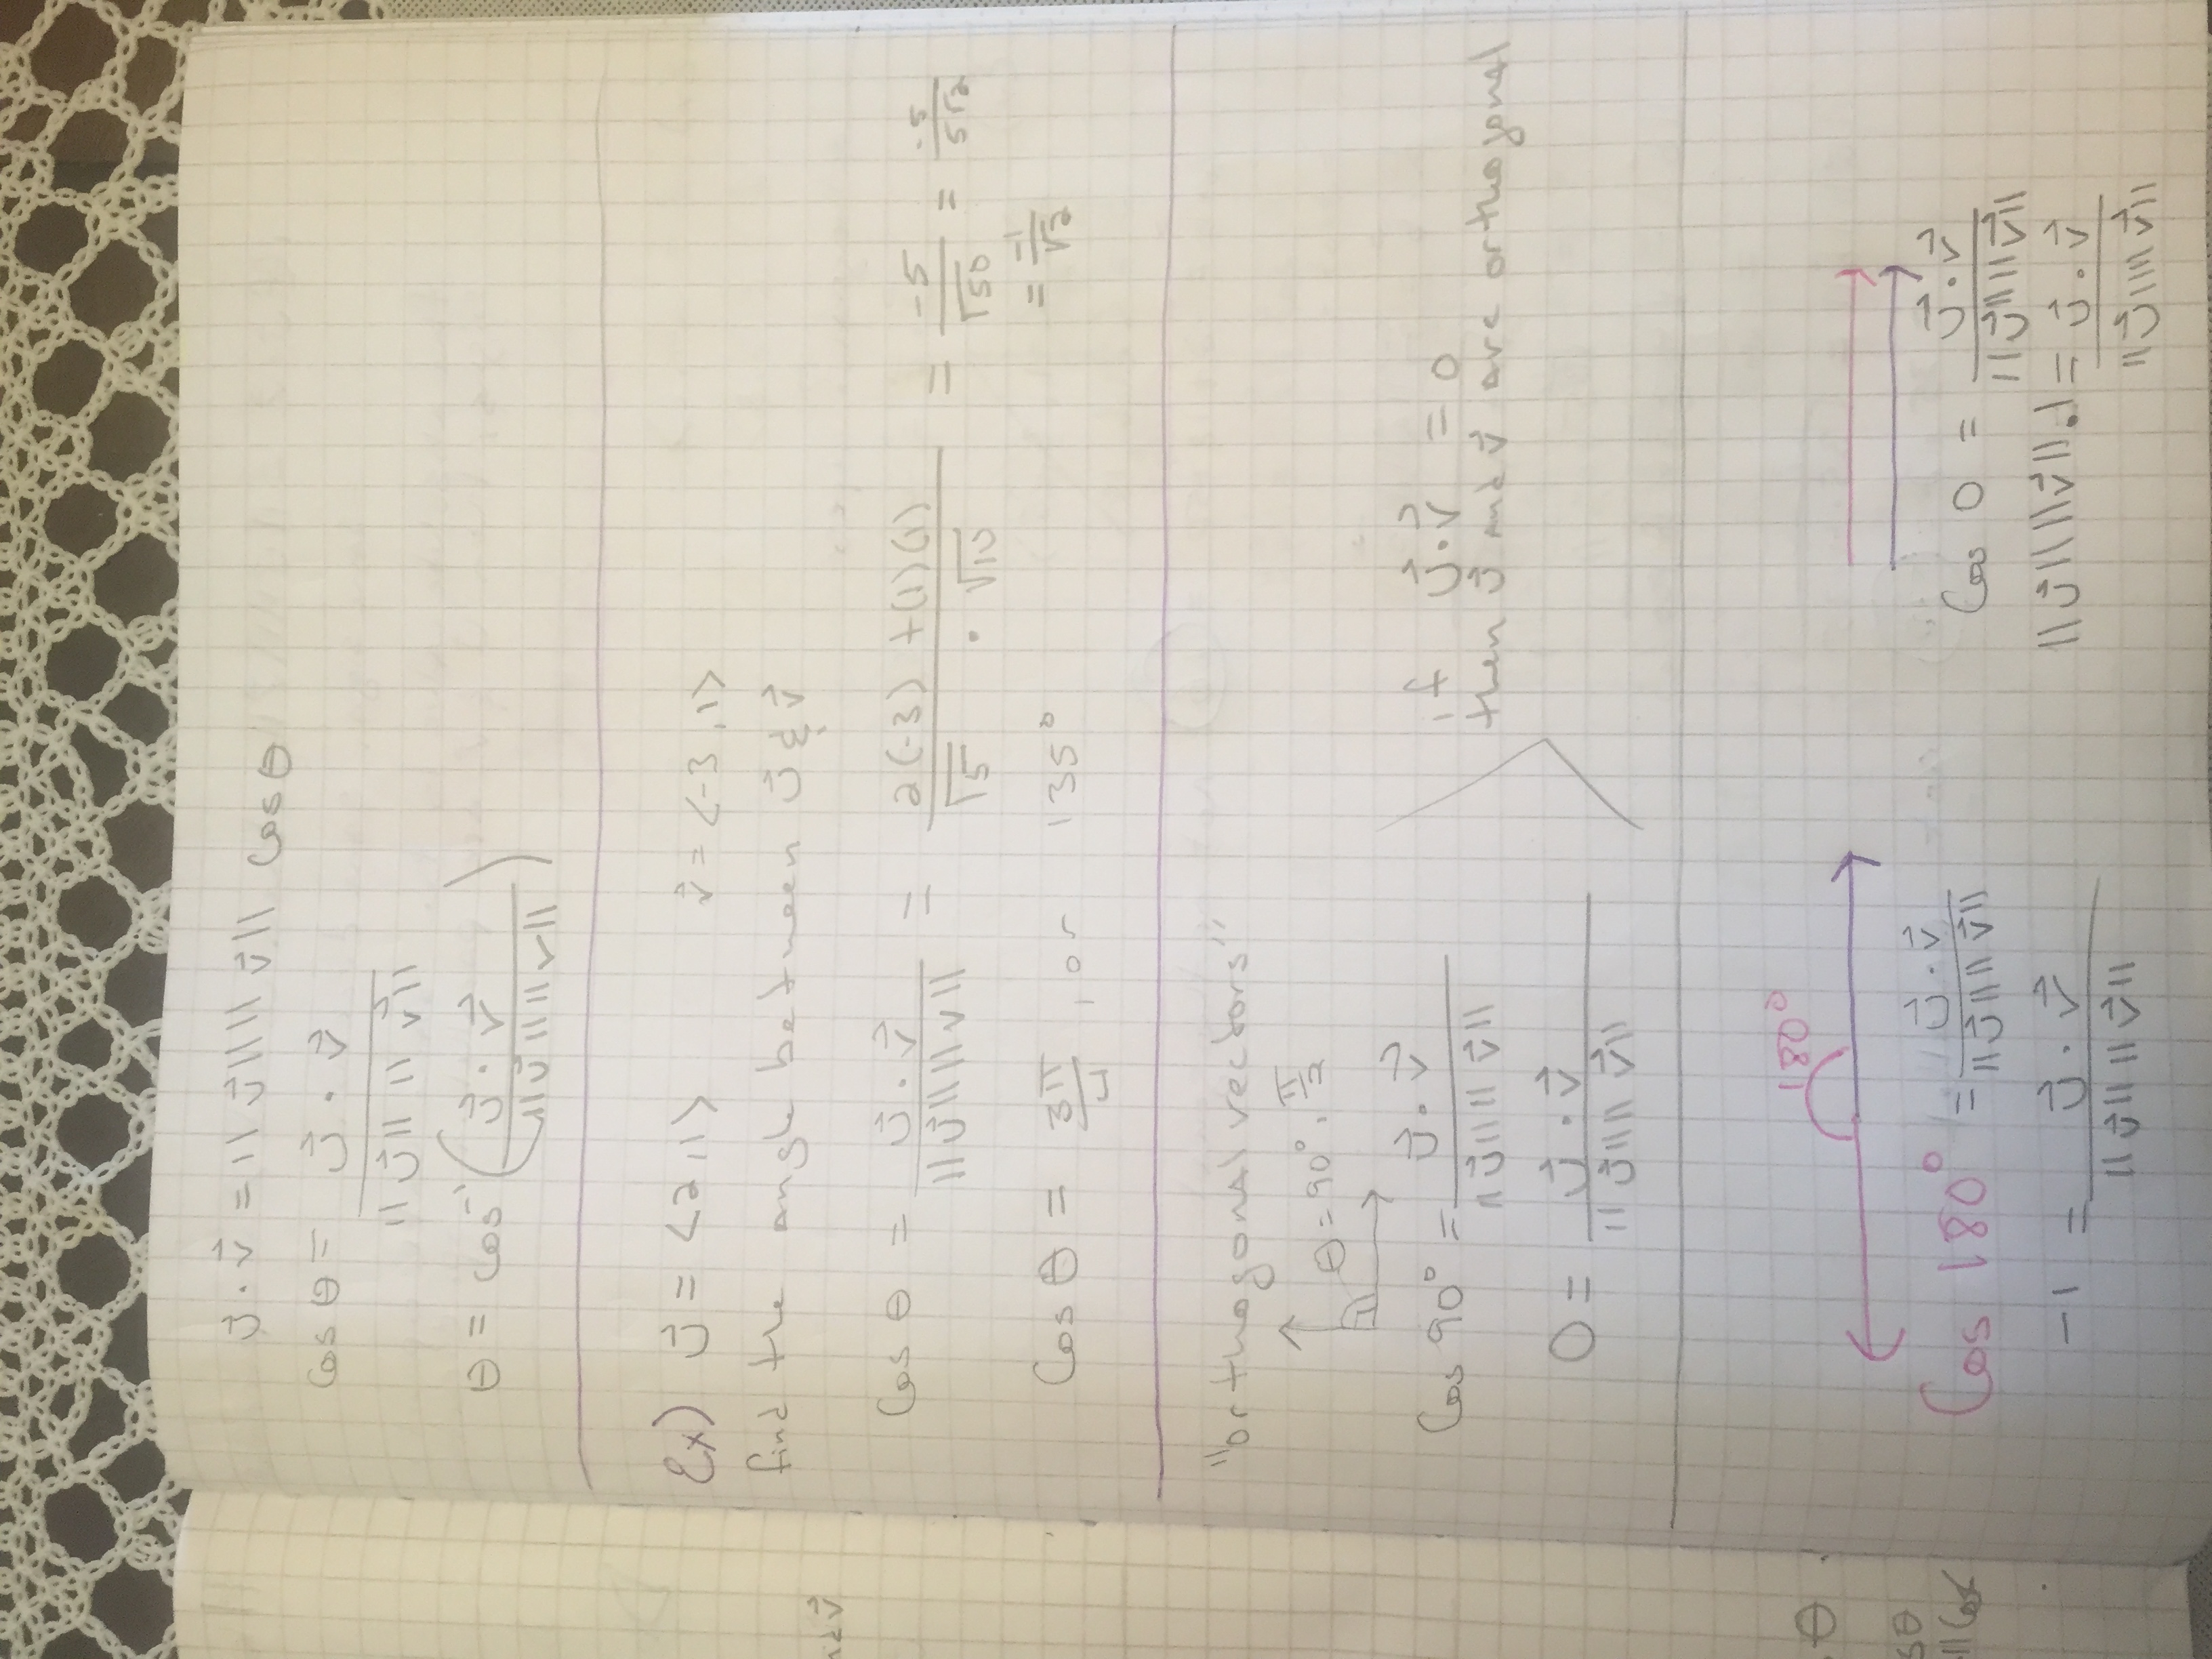 u⃗ · v⃗ = || u⃗ || || v⃗ || cos θ
cos θ = u⃗ · v⃗ / || u⃗ || || v⃗ ||
θ = cos⁻¹ ( u⃗ · v⃗ / || u⃗ || || v || )
Ex) u⃗ = <2,1> v⃗ = <-3,1>
find the angle between u⃗ & v⃗
cos θ = u⃗ · v⃗ / || u⃗ || || v || = 2(-3) + (1)(1) / √5 · √10 = -5 / √50 = -5 / 5√2
= -1 / √2
cos θ = 3π / 4 , or 135°
"orthogonal vectors"
θ = 90°, π / 2
cos 90° = u⃗ · v⃗ / || u⃗ || || v⃗ ||
if u⃗ · v⃗ = 0
then u⃗ and v⃗ are orthogonal
0 = u⃗ · v⃗ / || u⃗ || || v⃗ ||
180°
cos 180° = u⃗ · v⃗ / || u⃗ || || v⃗ ||
-1 = u⃗ · v⃗ / || u⃗ || || v⃗ ||
cos 0 = u⃗ · v⃗ / || u⃗ || || v⃗ ||
|| u⃗ || || v⃗ || · 1 = u⃗ · v⃗ / || u⃗ || || v⃗ ||